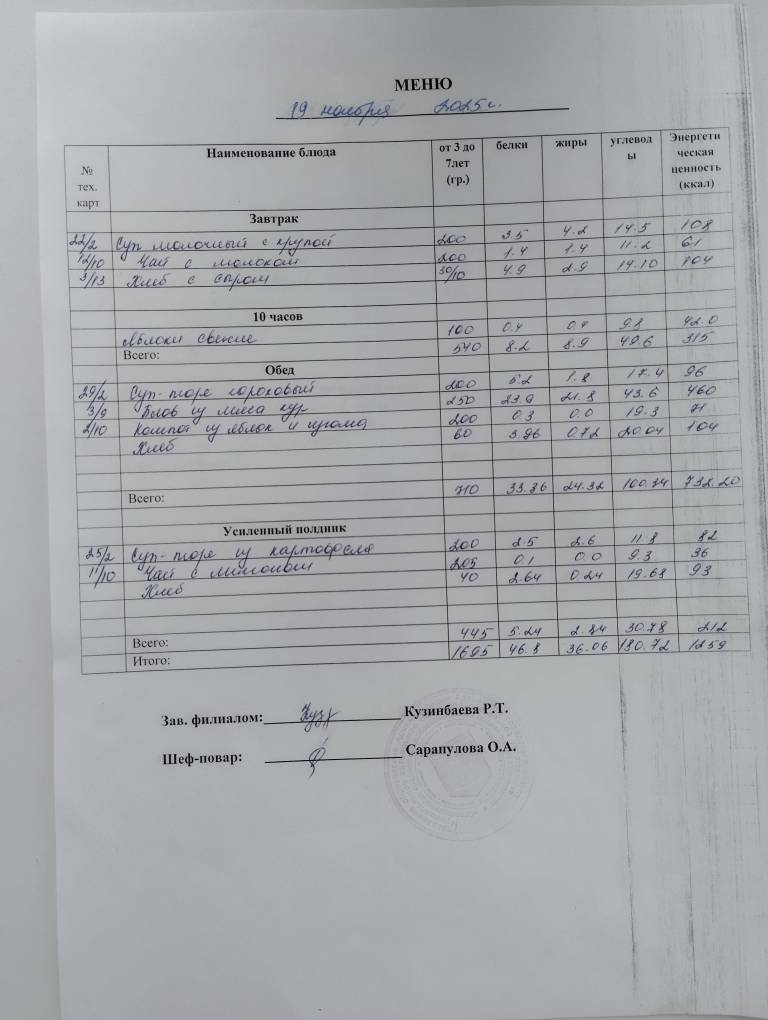 МЕНЮ
19 ноября 2025 г.
№ тех. карт Наименование блюда от 3 до 7лет (гр.) белки жиры углеводы Энергетическая ценность (ккал)
Завтрак
22/2 Суп молочный с крупой 200 3.5 4.2 14.5 108
12/10 Чай с молоком 200 1.4 1.4 11.2 61
3/13 Хлеб с сыром 30/10 4.9 2.9 14.10 104
10 часов
Яблоки свежие 100 0.4 0.4 9.8 42.0
Всего: 540 8.2 8.9 49.6 315
Обед
29/2 Суп-пюре гороховый 200 5.2 1.8 17.4 96
3/9 Плов из мяса кур 250 23.9 21.8 43.6 460
2/10 Компот из яблок и изюма 200 0.3 0.0 19.3 71
Хлеб 60 3.96 0.72 20.04 104
Всего: 710 33.36 24.32 100.34 732.20
Усиленный полдник
25/2 Суп-пюре из картофеля 200 2.5 2.6 11.8 82
11/10 Чай с лимоном 205 0.1 0.0 9.3 36
Хлеб 40 2.64 0.24 19.68 93
Всего: 445 5.24 2.84 30.78 212
Итого: 1695 46.8 36.06 180.72 1259
Зав. филиалом: Кузинбаева Р.Т.
Шеф-повар: Сарапулова О.А.